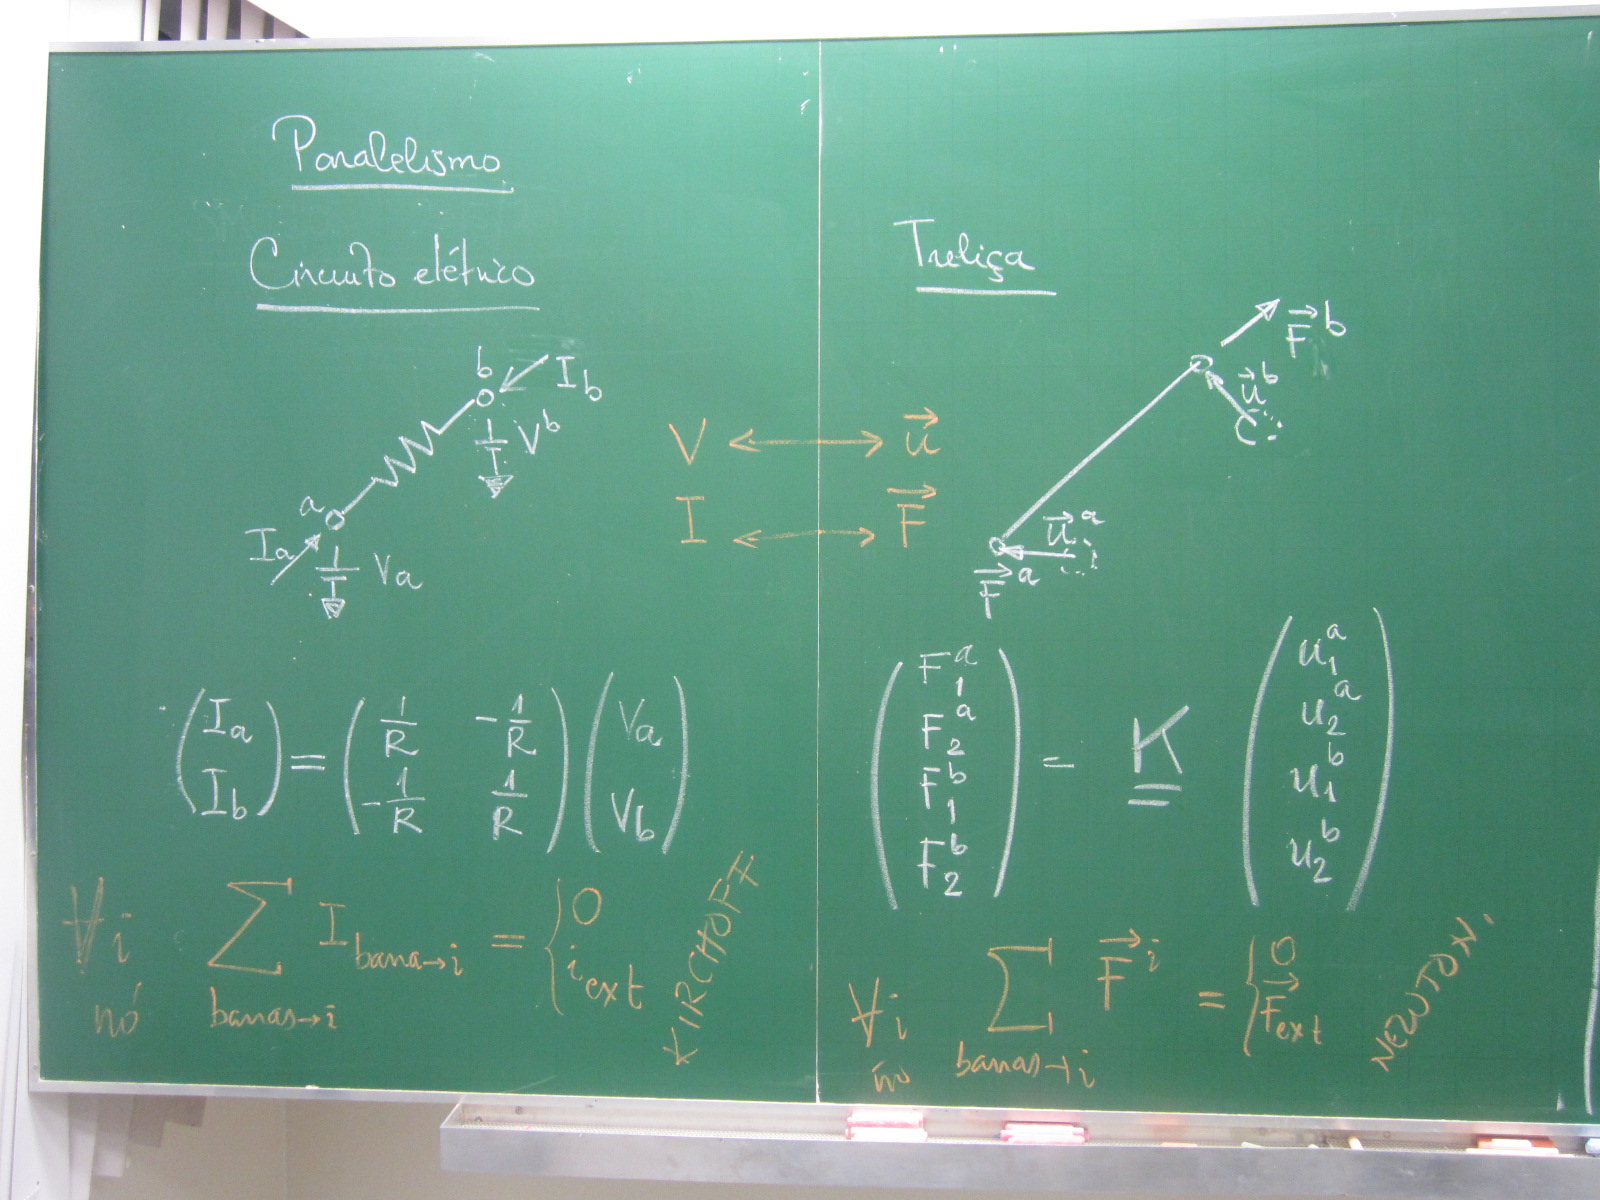 Paralelismo
Circuito elétrico
b
I_b
V^b
a
I_a
V_a
V ↔ \vec{u}
I ↔ \vec{F}
\begin{pmatrix} I_a \\ I_b \end{pmatrix} = \begin{pmatrix} \frac{1}{R} & -\frac{1}{R} \\ -\frac{1}{R} & \frac{1}{R} \end{pmatrix} \begin{pmatrix} V_a \\ V_b \end{pmatrix}
∀i nó \sum_{barras→i} I_{barra→i} = \begin{cases} 0 \\ i_{ext} \end{cases}
KIRCHOFF
Treliça
\vec{F}^b
\vec{u}^b
\vec{u}^a
\vec{F}^a
\begin{pmatrix} F_1^a \\ F_2^a \\ F_1^b \\ F_2^b \end{pmatrix} = \underline{\underline{K}} \begin{pmatrix} u_1^a \\ u_2^a \\ u_1^b \\ u_2^b \end{pmatrix}
∀i nó \sum_{barras→i} \vec{F}^i = \begin{cases} 0 \\ \vec{F}_{ext} \end{cases}
NEWTON.